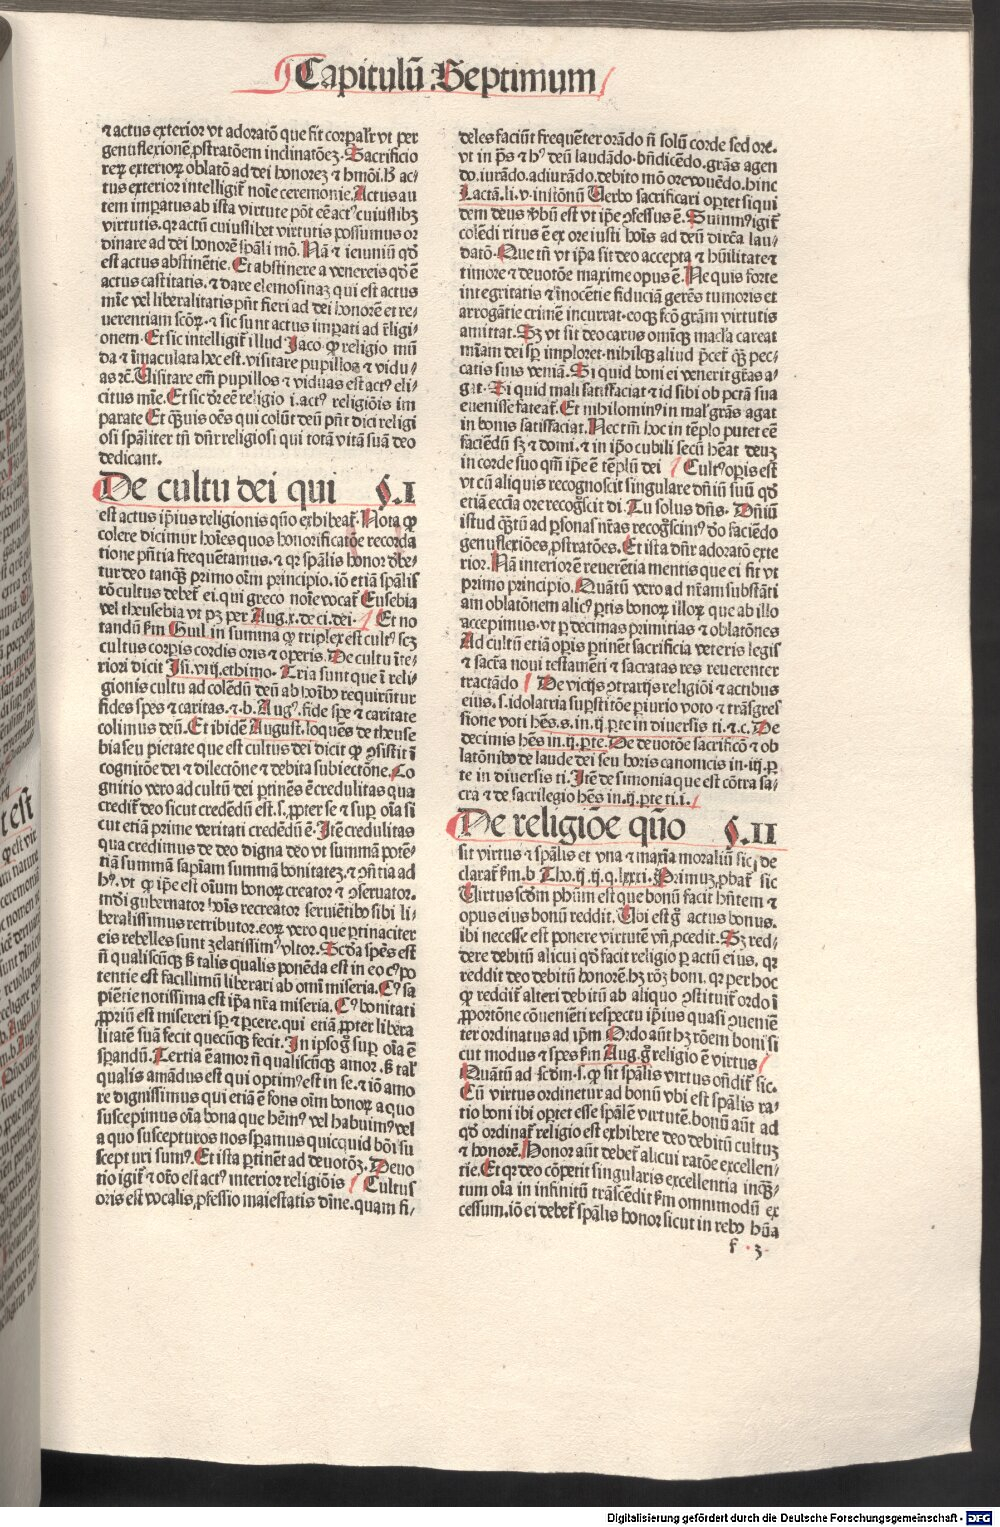 Capitulū Septimum
⁊ actus exterior vt adoratō que fit corpalr̄ vt per
genuflexionē ꝓstratōem inclinatōeꝫ. Sacrificio
reꝝ exterioꝝ oblatō ad dei honoreꝫ ⁊ hmōi. ß ac⸗
tus exterior intelligit̄ noīe ceremonie. Actus au
tem imꝑatus ab ista virtute pōt eē actꝰ cuiuslibꝫ
virtutis. qꝛ actū cuiuslibet virtutis possumus or
dinare ad dei honorē spāli mō. Nā ⁊ ieiuniū qd̄
est actus abstinētie. Et abstinere a venereis qd̄ ē
actus castitatis. ⁊ dare elemosinaꝫ qui est actus
mīe vel liberalitatis pn̄t fieri ad dei honorē et re⸗
uerentiam scōꝝ. ⁊ sic sunt actus imꝑati ad r̄ligi
onem. Et sic intelligit̄ illud Jaco. ꝙ religio mū
da ⁊ īmaculata hec est. visitare pupillos ⁊ vidu⸗
as rē. Uisitare em̄ pupillos ⁊ viduas est actꝰ eli
citus mīe. Et sic dꝛ eē religio .i. actꝰ religiōis im
parate Et qͣuis oēs qui colūt deū pn̄t dici religi
osi spāliter tn̄ dn̄r religiosi qui totā vitā suā deo
dedicant.
De cultu dei qui §.I
est actus ip̄ius religionis qūo exhibeat̄. Nota ꝙ
colere dicimur hoīes quos honorificatōe recorda
tione pn̄tia frequētamus. ⁊ qꝛ spālis honor dēbe⸗
tur deo tanqͣꝫ primo oīm principio. iō etiā spālis
rō cultus debet̄ ei. qui greco noīe vocat̄ Eusebia
vel theusebia vt pꝫ per Aug. x. de ci. dei. Et no
tandū ẜm Guil. in summa ꝙ triplex est cultꝰ scꝫ
cultus corpis cordis oris ⁊ oꝑis. De cultu īte⸗
riori dicit Isi. viij. ethimo. Tria sunt que ī reli⸗
gionis cultu ad colēdū deū ab hoībꝰ requirūtur
fides spes ⁊ caritas. ⁊ .b. Augꝰ. fide spe ⁊ caritate
colimus deū. Et ibidē August. loquēs de theuse
bia seu pietate que est cultus dei dicit ꝙ ꝯsistit ī
cognitōe dei ⁊ dilectōne ⁊ debita subiectōne. Co
gnitio vero ad cultū dei ꝑtinēs ē credulitas qua
credit̄ deo sicut credēdū est .s. ꝓpter se ⁊ suꝑ oīa si
cut etiā prime veritati credēdū ē. Itē credulitas
qua credimus de deo digna deo vt summā potē⸗
tiā summā sapīam summā bonitateꝫ ⁊ ꝯn̄tia ad
hꝰ. vt ꝙ ip̄e est oīum bonoꝝ creator ⁊ ꝯseruator.
mōi gubernator hoīs recreator seruiētibꝰ sibi li⸗
beralissimus retributor. eoꝝ vero que ꝑtinaciter
eis rebelles sunt zelatissimꝰ vltor. Scd̄a spēs est
n̄ qualiscūqꝫ ß talis qualis ponēda est in eo cꝰ po
tentie est facillimū liberari ab omī miseria. Cꝰ sa
piētie notissima est ip̄a nr̄a miseria. Cꝰ bonitati
ꝓpriū est misereri sꝑ ⁊ ꝑcere. qui etiā ꝓpter libera
litatē suā fecit quecūqꝫ fecit. In ipso gͦ suꝑ oīa ē
spandū. Tertia ē amor n̄ qualiscūqꝫ amor. ß tal̄
qualis amādus est qui optimꝰ est in se. ⁊ iō amo
re dignissimus qui etiā ē fons oīm bonoꝝ a quo
suscepimus oīa bona que hēimꝰ vel habuimꝰ vel
a quo suscepturos nos sꝑamus quicquid boī su
scepturi sumꝰ. Et ista ꝑtinēt ad deuotōꝫ. Deuo
tio igit̄ ⁊ oro est actꝰ interior religiōis Cultus
oris est vocalis ꝓfessio maiestatis dīne. quam fi⸗
deles faciūt frequēter orādo n̄ solū corde sed ore.
vt in ps̄ ⁊ hꝰ deū laudādo. bn̄dicēdo. grās agen
do. iurādo. adiurādo. debito mō ore vouēdo. hinc
Lactā. li. v. instōnū Uerbo sacrificari oꝑtet si qui
dem deus v̄bū est vt ip̄e ꝯfessus ē. Summꝰ igit̄
colēdi ritus ē ex ore iusti hoīs ad deū dirēa lau⸗
datō. Que tn̄ vt ip̄a sit deo accepta ⁊ hūilitate ⁊
timore ⁊ deuotōe maxime opus ē. Ne quis forte
integritatis ⁊ īnocētie fiduciā gerēs tumoris et
arrogātie crimē incurrat. eoqꝫ fcō grām virtutis
amittat. Sꝫ vt sit deo carus omīqꝫ macl̄a careat
mīam dei sꝑ imploret. nihilqꝫ aliud p̄cet̄ qͣꝫ pec⸗
catis suis veniā. Si quid boni ei venerit grās a⸗
gat. Si quid mali satisfaciat ⁊ id sibi ob pctā sua
euenisse fateat̄. Et nihilominꝰ in malꝭ grās agat
in bonis satisfaciat. Nec tm̄ hoc in tēplo putet eē
faciēdū sꝫ ⁊ domi. ⁊ in ip̄o cubili secū hēat deuꝫ
in corde suo qm̄ ip̄e ē tēplū dei Cultꝰ oꝑis est
vt cū aliquis recognoscit singulare dn̄iū suū qd̄
etiā eccīa ore recogͦscit di. Tu solus dn̄s. Dn̄iū
istud qͣtū ad ꝑsonas nr̄as recogͦscimꝰ dō faciēdo
genuflexiōes ꝓstratōes. Et ista dn̄r adoratō exte
rior. Nā interiorē reuerētia mentis que ei fit vt
primo principio. Quātū vero ad nr̄am substāti
am oblatōnem alicꝰ ꝑtis bonoꝝ illoꝝ que ab illo
accepimus. vt ꝑ decimas primitias ⁊ oblatōnes
Ad cultū etiā oꝑis ꝑtinēt sacrificia veteris legis
⁊ sacr̄a noui testamēti ⁊ sacratas res reuerenter
tractādo De vicijs ꝯtrarijs religiōi ⁊ actibus
eius .s. idolatria suꝑstitōe ꝑiurio voto ⁊ trāsgres
sione voti hēs .s. in .ij. ꝑte in diuersis ti. ⁊ c. De
decimis hēs in .ij. ꝑte. De deuotōe sacrificō ⁊ ob
latōnibꝰ de laude dei seu horis canonicis in .iij. ꝑ
te in diuersis ti. Itē de simonia que est cōtra sa⸗
cra ⁊ de sacrilegio hēs in .ij. ꝑte ti. i.
De religiōe qūo §.II
sit virtus ⁊ spālis et vna ⁊ maxīa moraliū sic de
clarat ẜm .b. Tho. ij. ij. q. lxxxi. Primuꝫ ꝓbat̄ sic
Uirtus scd̄m phūm est que bonū facit hn̄tem ⁊
opus eius bonū reddit. Ubi est gͦ actus bonus.
ibi necesse est ponere virtutē vn̄ ꝓcedit. Sꝫ red⸗
dere debitū alicui qd̄ facit religio ꝑ actū eius. qꝛ
reddit deo debitū honorē. hꝫ rōꝫ boni. qꝛ per hoc
ꝙ reddit̄ alteri debitū ab aliquo ꝯstituit̄ ordo ī
ꝓportōne cōueniēti respectu ip̄ius quasi ꝯueniē
ter ordinatus ad ip̄m Ordo aūt hꝫ rōem boni si
cut modus ⁊ spēs ẜm Aug. gͦ religio ē virtus
Quātū ad scd̄m .s. ꝙ sit spālis virtus on̄dit̄ sic.
Cū virtus ordinetur ad bonū vbi est spālis ra⸗
tio boni ibi oꝑtet esse spālē virtutē. bonū aūt ad
qd̄ ordinat̄ religio est exhibere deo debitū cultuꝫ
⁊ honorē. Honor aūt debet̄ alicui ratōe excellen⸗
tie. Et qꝛ deo cōpetit singularis excellentia inqͣꝫ⸗
tum oīa in infinitū trāscēdit ẜm omnimodū ex
cessum. iō ei debet̄ spālis honor sicut in rebꝰ hūa
f .3.
Digitalisierung gefördert durch die Deutsche Forschungsgemeinschaft - DFG